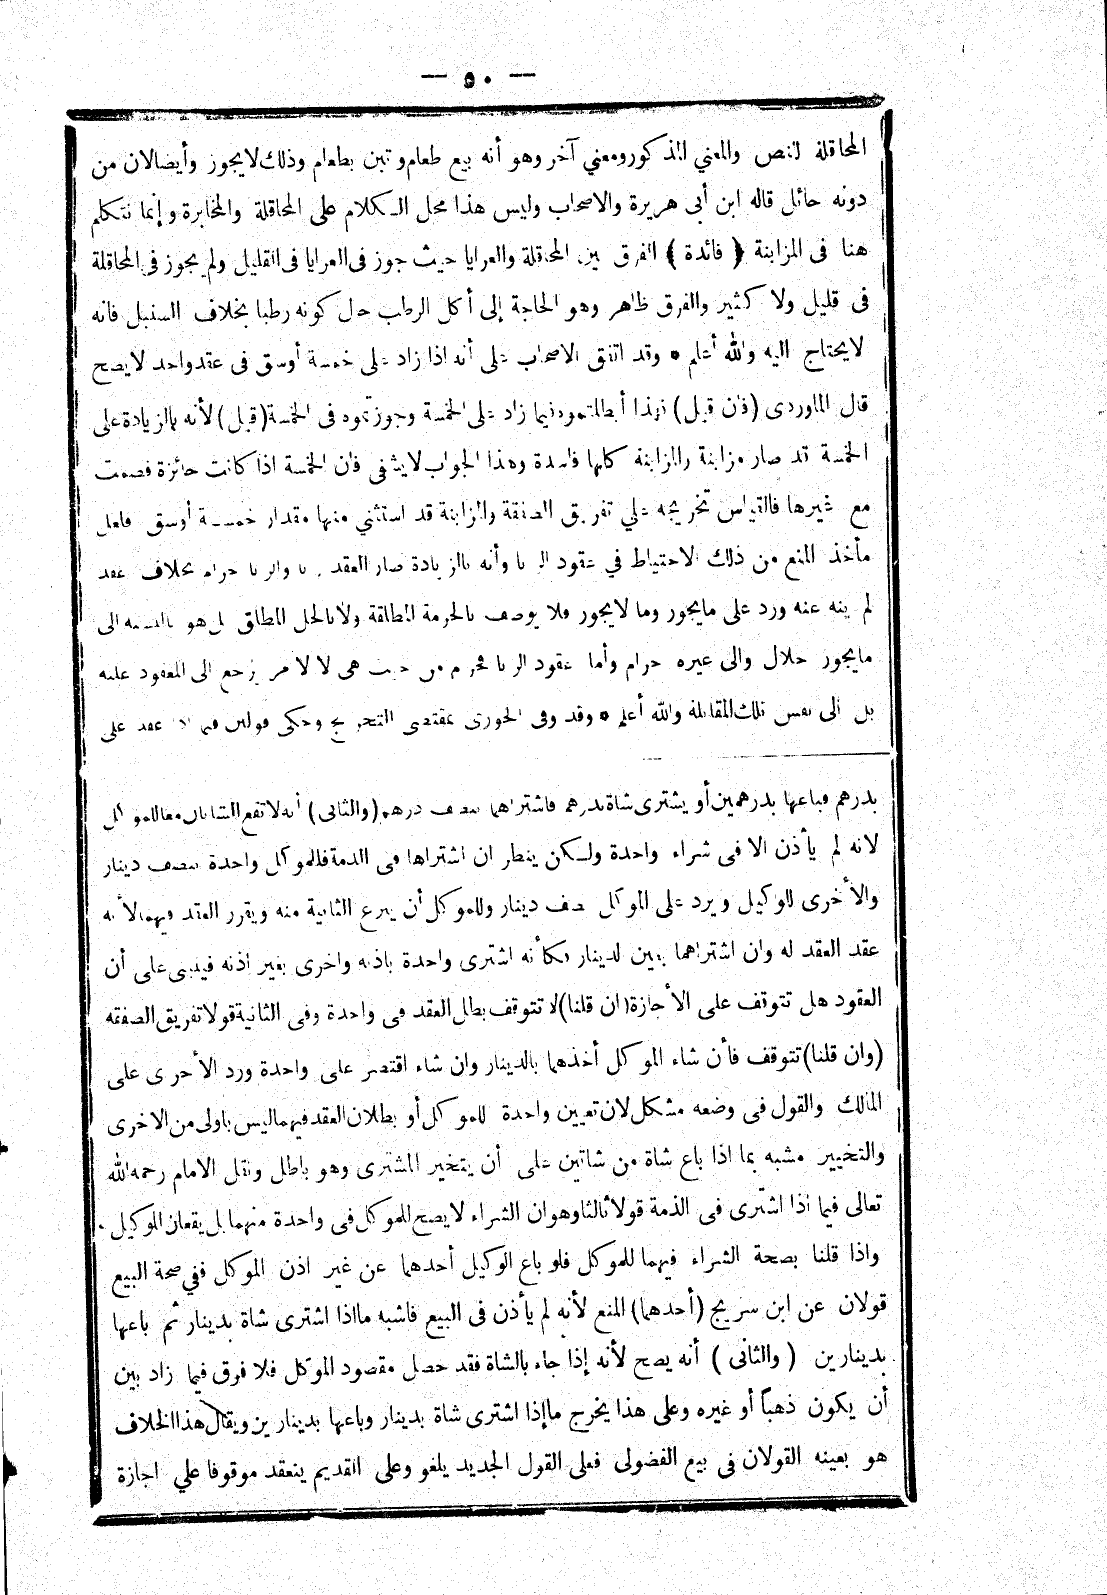 — ٥٠ —
المحاقلة للنص والمعني المذكور ومعني آخر وهو أنه بيع طعام وتبن بطعام وذلك لا يجوز وأيضا لان من
دونه حائل قاله ابن أبى هريرة والاصحاب وليس هذا محل الكلام على المحاقلة والمخابرة وإنما نتكلم
هنا فى المزابنة ﴿ فائدة ﴾ الفرق بين المحاقلة والعرايا حيث جوز فى العرايا فى القليل ولم يجوز فى المحاقلة
فى قليل ولا كثير والفرق ظاهر وهو الحاجة إلى أكل الرطب حال كونه رطبا بخلاف السنبل فانه
لا يحتاج اليه والله أعلم * وقد اتفق الاصحاب على أنه اذا زاد على خمسة أوسق فى عقد واحد لا يصح
قال الماوردى (فان قيل) فهذا أبطلتموه فيما زاد على الخمسة وجوزتموه فى الخمسة (قيل) لأنه بالزيادة على
الخمسة قد صار مزابنة والمزابنة كلها فاسدة وهذا الجواب لا يشفى فان الخمسة اذا كانت جائزة فضمت
مع غيرها فالقياس تخريجه على تفريق الصفقة والمزابنة قد استثني منها مقدار خمسة أوسق فلعل
مأخذ المنع من ذلك الاحتياط في عقود الربا وأنه بالزيادة صار العقد ربا والربا حرام بخلاف عقد
لم ينه عنه ورد على ما يجوز وما لا يجوز فلا يوصف بالحرمة المطلقة ولا بالحل المطلق بل هو بالنسبة الى
ما يجوز حلال والى غيره حرام وأما عقود الربا فمحرم من حيث هى لا لامر يرجع الى المعقود عليه
بل الى نفس تلك المقابلة والله أعلم * وقد وفى الجورى بمقتضى التخريج وحكى قولين فيما اذا عقد على
بدرهم فباعها بدرهمين أو يشترى شاة بدرهم فاشتراهما بنصف درهم (والثانى) أنه لا تقع الشاتان معا للموكل
لانه لم يأذن الا فى شراء واحدة ولكن ينظر ان اشتراها فى الذمة فللموكل واحدة بنصف دينار
والأخرى للوكيل ويرد على الموكل نصف دينار وللموكل أن ينزع الثانية منه ويقرر العقد فيهما لأنه
عقد العقد له وان اشتراهما بعين الدينار فكأنه اشترى واحدة باذنه واخرى بغير اذنه فيبنى على أن
العقود هل تتوقف على الأجازة (ان قلنا) لا تتوقف بطل العقد فى واحدة وفى الثانية قولا تفريق الصفقه
(وان قلنا) تتوقف فأن شاء الموكل أخذهما بالدينار وان شاء اقتصر على واحدة ورد الأخرى على
المالك والقول فى وضعه مشكل لان تعيين واحدة للموكل أو بطلان العقد فيهما ليس باولى من الاخرى
والتخيير مشبه بما اذا باع شاة من شاتين على أن يتخير المشترى وهو باطل ونقل الامام رحمه الله
تعالى فيما اذا اشترى فى الذمة قولا ثالثا وهو ان الشراء لا يصح للموكل فى واحدة منهما بل يقعان للوكيل .
واذا قلنا بصحة الشراء فيهما للموكل فلو باع الوكيل أحدهما عن غير اذن الموكل ففي صحة البيع
قولان عن ابن سريج (أحدهما) المنع لأنه لم يأذن فى البيع فاشبه ما اذا اشترى شاة بدينار ثم باعها
بدينارين (والثانى) أنه يصح لأنه إذا جاء بالشاة فقد حصل مقصود الموكل فلا فرق فيما زاد بين
أن يكون ذهباً أو غيره وعلى هذا يخرج ما إذا اشترى شاة بدينار وباعها بدينارين ويقال هذا الخلاف
هو بعينه القولان فى بيع الفضولى فعلى القول الجديد يلغو وعلى القديم ينعقد موقوفا علي اجازة